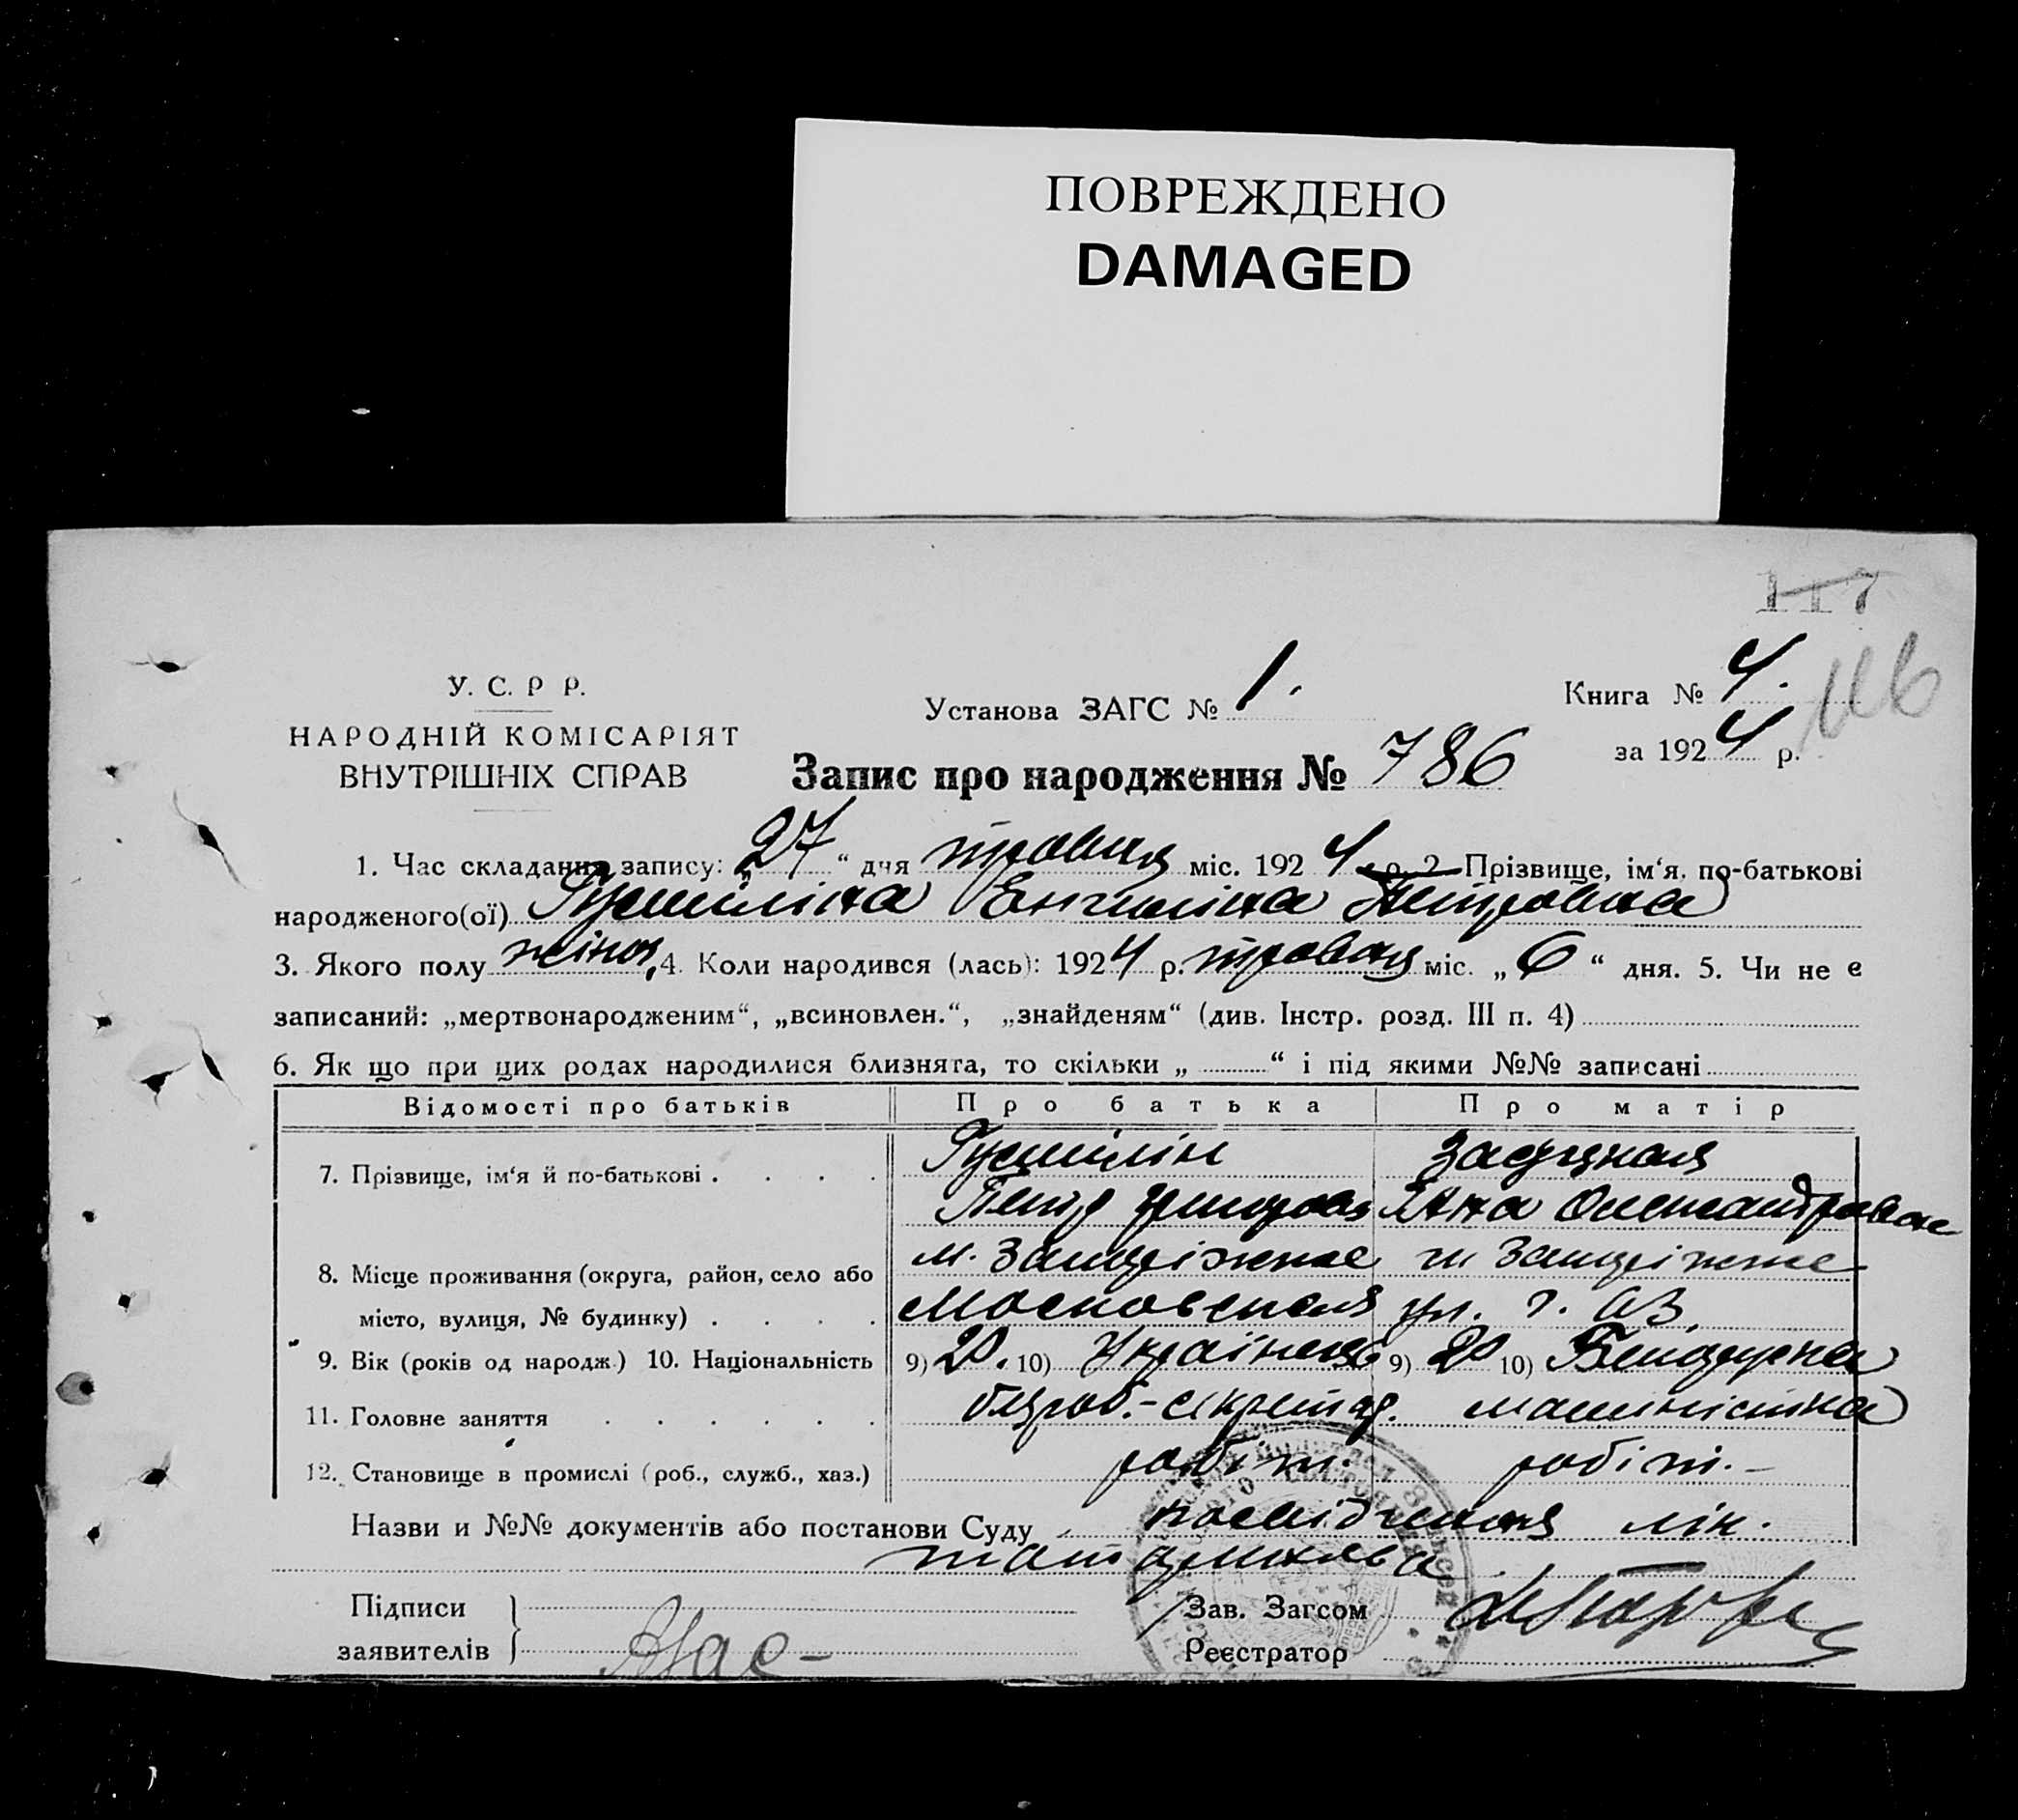 ПОВРЕЖДЕНО
DAMAGED
117
116
У. С. Р Р.
НАРОДНІЙ КОМІСАРІЯТ
ВНУТРІШНІХ СПРАВ
Установа ЗАГС № 1.
Книга № 4.
за 1924 р.
Запис про народження № 786
1. Час складання запису: „27“ дня травня міс. 1924 р. 2 Прізвище, ім‘я, по-батькові
народженого(ої) Петровна
3. Якого полу жіноч. 4. Коли народився (лась): 1924 р. травня міс. „6“ дня. 5. Чи не є
записаний: „мертвонародженим“, „всиновлен.“, „знайденям“ (див. Інстр. розд. III п. 4)
6. Як що при цих родах народилися близнята, то скільки „ “ і під якими №№ записані
Відомості про батьків Про батька Про матір
7. Прізвище, ім‘я й по-батькові
Петр Анна Олександровна
8. Місце проживання (округа, район, село або м. Запоріжжє м Запоріжжє
місто, вулиця, № будинку) Московская ул.
9. Вік (років од народж.) 10. Національність 9) 20. 10) Українець 9) 20 10)
11. Головне заняття -секретар. машиністка
12. Становище в промислі (роб., служб., хаз.) робітн. робітн.-
Назви и №№ документів або постанови Суду посвідчення лік.
Підписи
заявителів
Зав. Загсом
Реєстратор